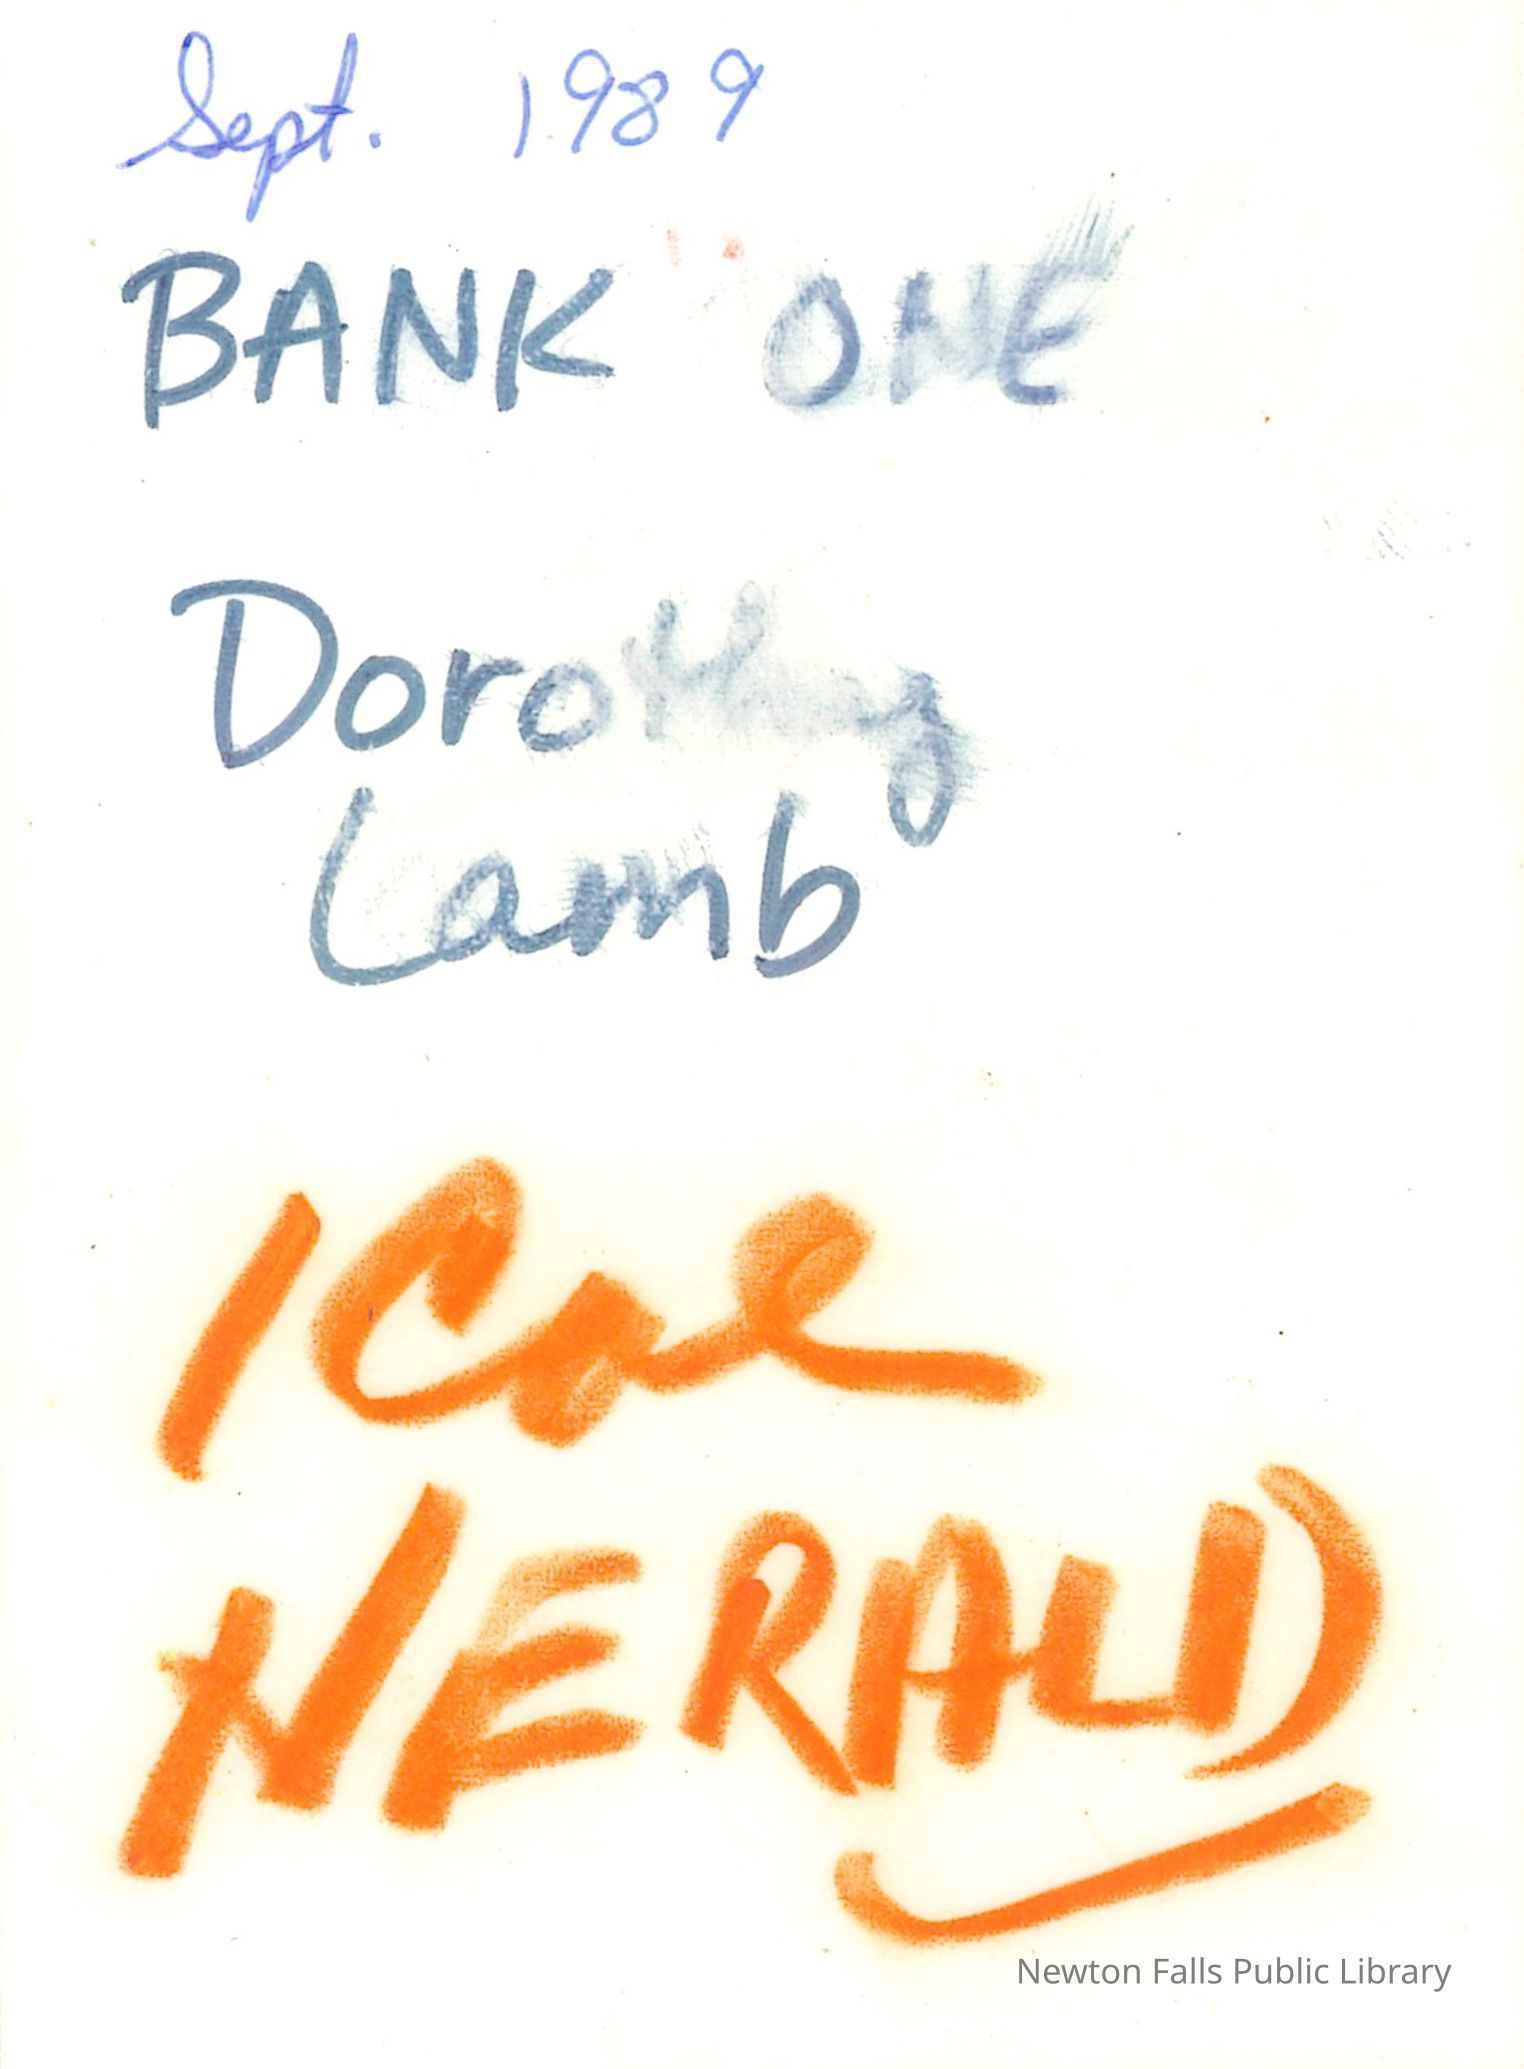 Sept. 1989
BANK "ONE
Dorothy
Lamb
1 Col
HERALD
Newton Falls Public Library